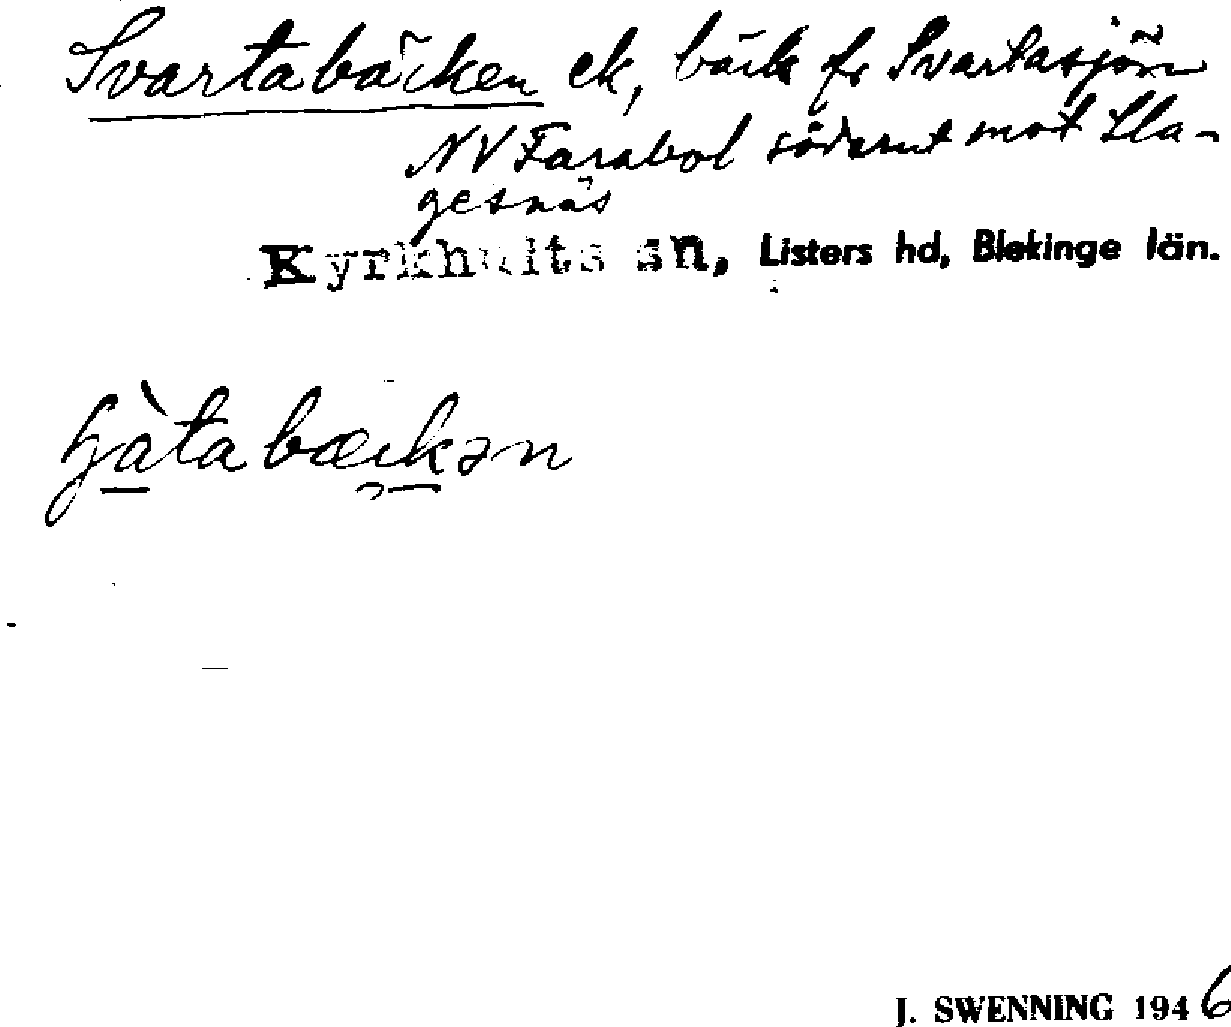 Svartabäcken ek, bäck fr Svartasjön
NV Farabol söderut mot Sla-
gesnäs
Kyrkhults sn, Listers hd, Blekinge län.
J. SWENNING 1946